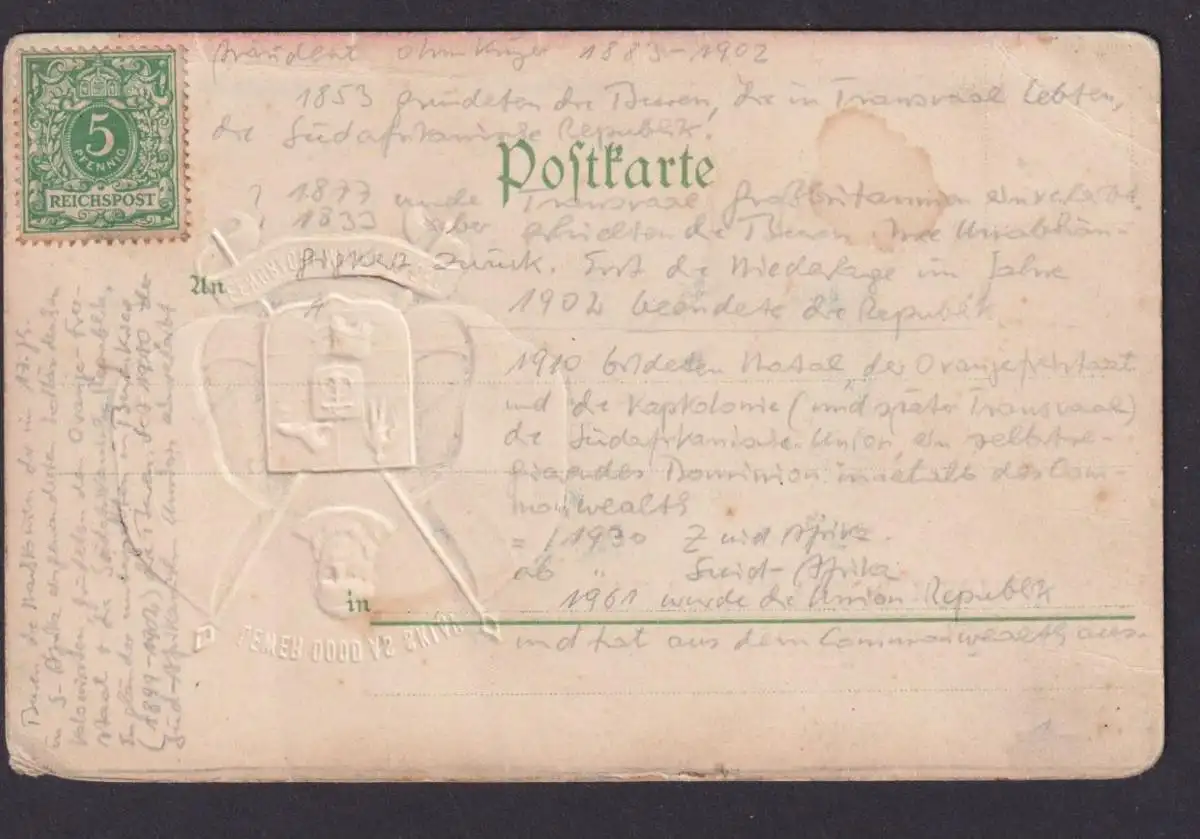 5
PFENNIG
REICHSPOST
Präsident Ohm Krüger 1883-1902
1853 gründeten die Buren, die in Transvaal lebten,
die Südafrikanische Republik.
Postkarte
1877 wurde Transvaal Großbritannien einverleibt.
1833 aber erhielten die Buren ihre Unabhän-
gigkeit zurück. Erst die Niederlage im Jahre
An
1902 beendete die Republik
1910 bildeten Natal, der Oranjefreistaat
und die Kapkolonie (und später Transvaal)
die Südafrikanische Union, ein selbstre-
gierendes Dominion innerhalb des Com-
monwealth
" 1930 Zuid Afrika.
ab " Suid-Afrika
1961 wurde die Union Republik
in
und trat aus dem Commonwealth aus.
Buren die Nachkommen der in 17. Jh.
in S-Afrika eingewanderten holländischen
Kolonisten, sie leben den Oranje-Frei-
staat + die Südafrikanische Republik,
Engländer unterwarfen im Burenkrieg
(1899-1902) die Buren. der 1910 der
Süd-Afrikanischen Union einverleibt